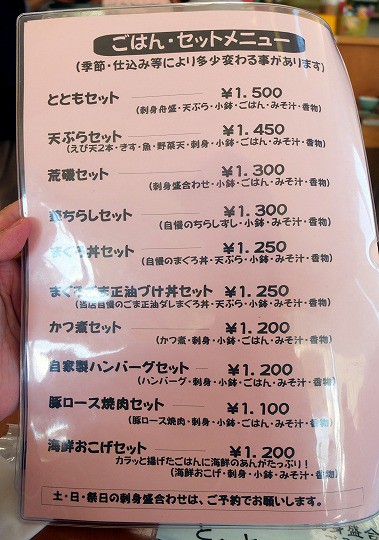 ごはん・セットメニュー
(季節・仕込み等により多少変わる事があります)
とともセット ¥1.500
(刺身舟盛・天ぷら・小鉢・ごはん・みそ汁・香物)
天ぷらセット ¥1.450
(えび天2本・きす・魚・野菜天・刺身・小鉢・ごはん・みそ汁・香物)
荒磯セット ¥1.300
(刺身盛合わせ・小鉢・ごはん・みそ汁・香物)
ちらしセット ¥1.300
(自慢のちらしずし・小鉢・みそ汁・香物)
まぐろ丼セット ¥1.250
(自慢のまぐろ丼・天ぷら・小鉢・みそ汁・香物)
まぐろごま正油づけ丼セット ¥1.250
(当店自慢のごま正油ダレまぐろ丼・天ぷら・小鉢・みそ汁・香物)
かつ煮セット ¥1.200
(かつ煮・刺身・小鉢・ごはん・みそ汁・香物)
自家製ハンバーグセット ¥1.200
(ハンバーグ・刺身・小鉢・ごはん・みそ汁・香物)
豚ロース焼肉セット ¥1.100
(豚ロース焼肉・刺身・小鉢・ごはん・みそ汁・香物)
海鮮おこげセット ¥1.200
カラッと揚げたごはんに海鮮のあんがたっぷり!
(海鮮おこげ・刺身・小鉢・みそ汁・香物)
土・日・祭日の刺身盛合わせは、ご予約でお願いします。